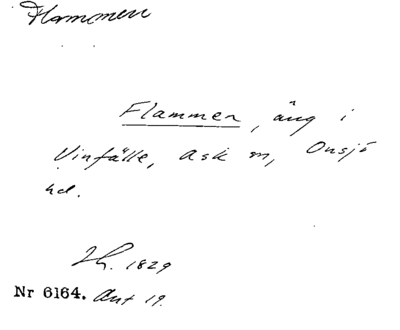 Flammen
Flammen, äng i
Vinfälle, Ask sn, Onsjö
hd.
Lh. 1829
Nr 6164. Ant 19.